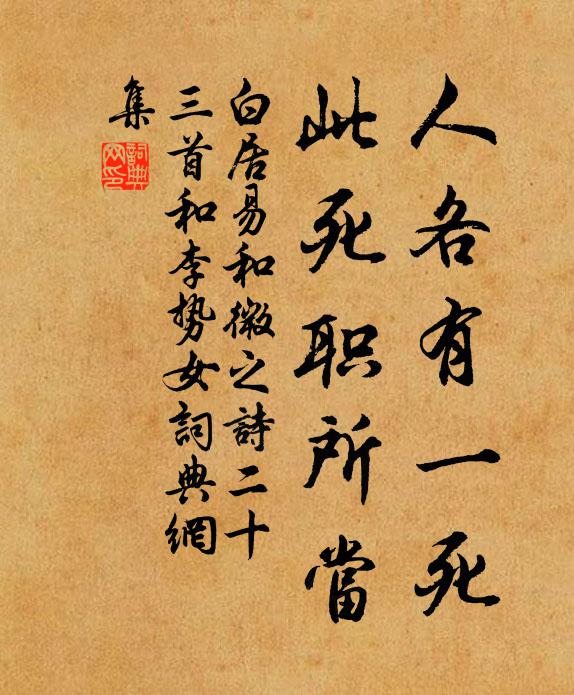 人各有一死
此死职所當
白居易和微之詩二十
三首和李势女詞典網
集
詞典網印